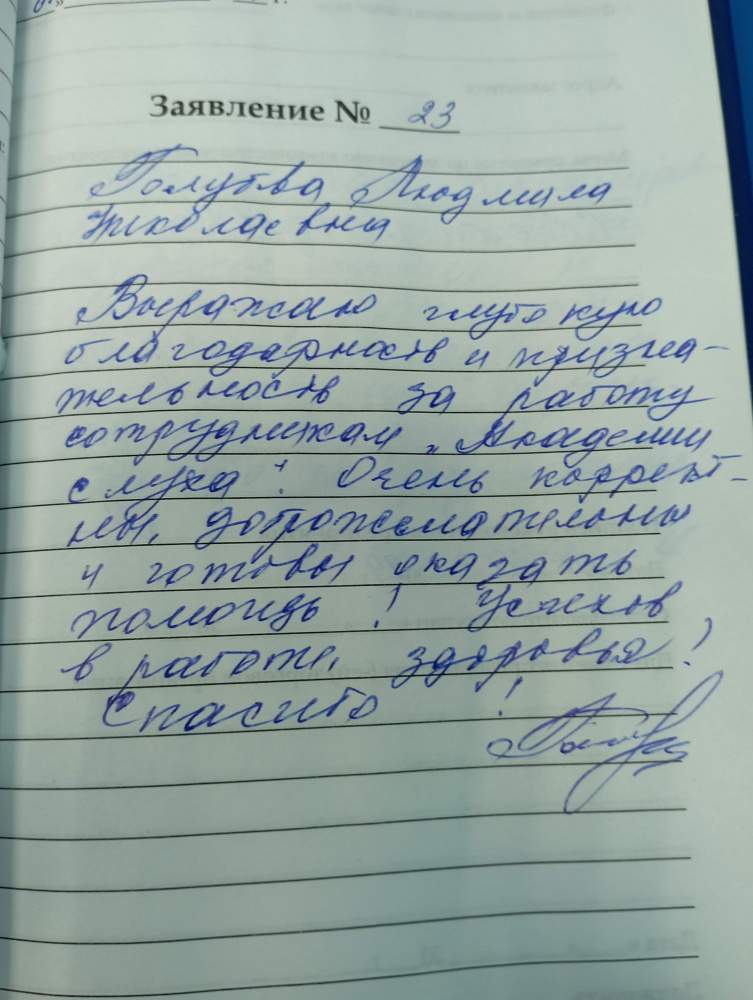 Заявление № 23
Голубева Людмила
Николаевна
Выражаю глубокую
благодарность и призна-
тельность за работу
сотрудникам "Академии
слуха". Очень коррект-
ны, доброжелательны
и готовы оказать
помощь! Успехов
в работе, здоровья!
Спасибо !